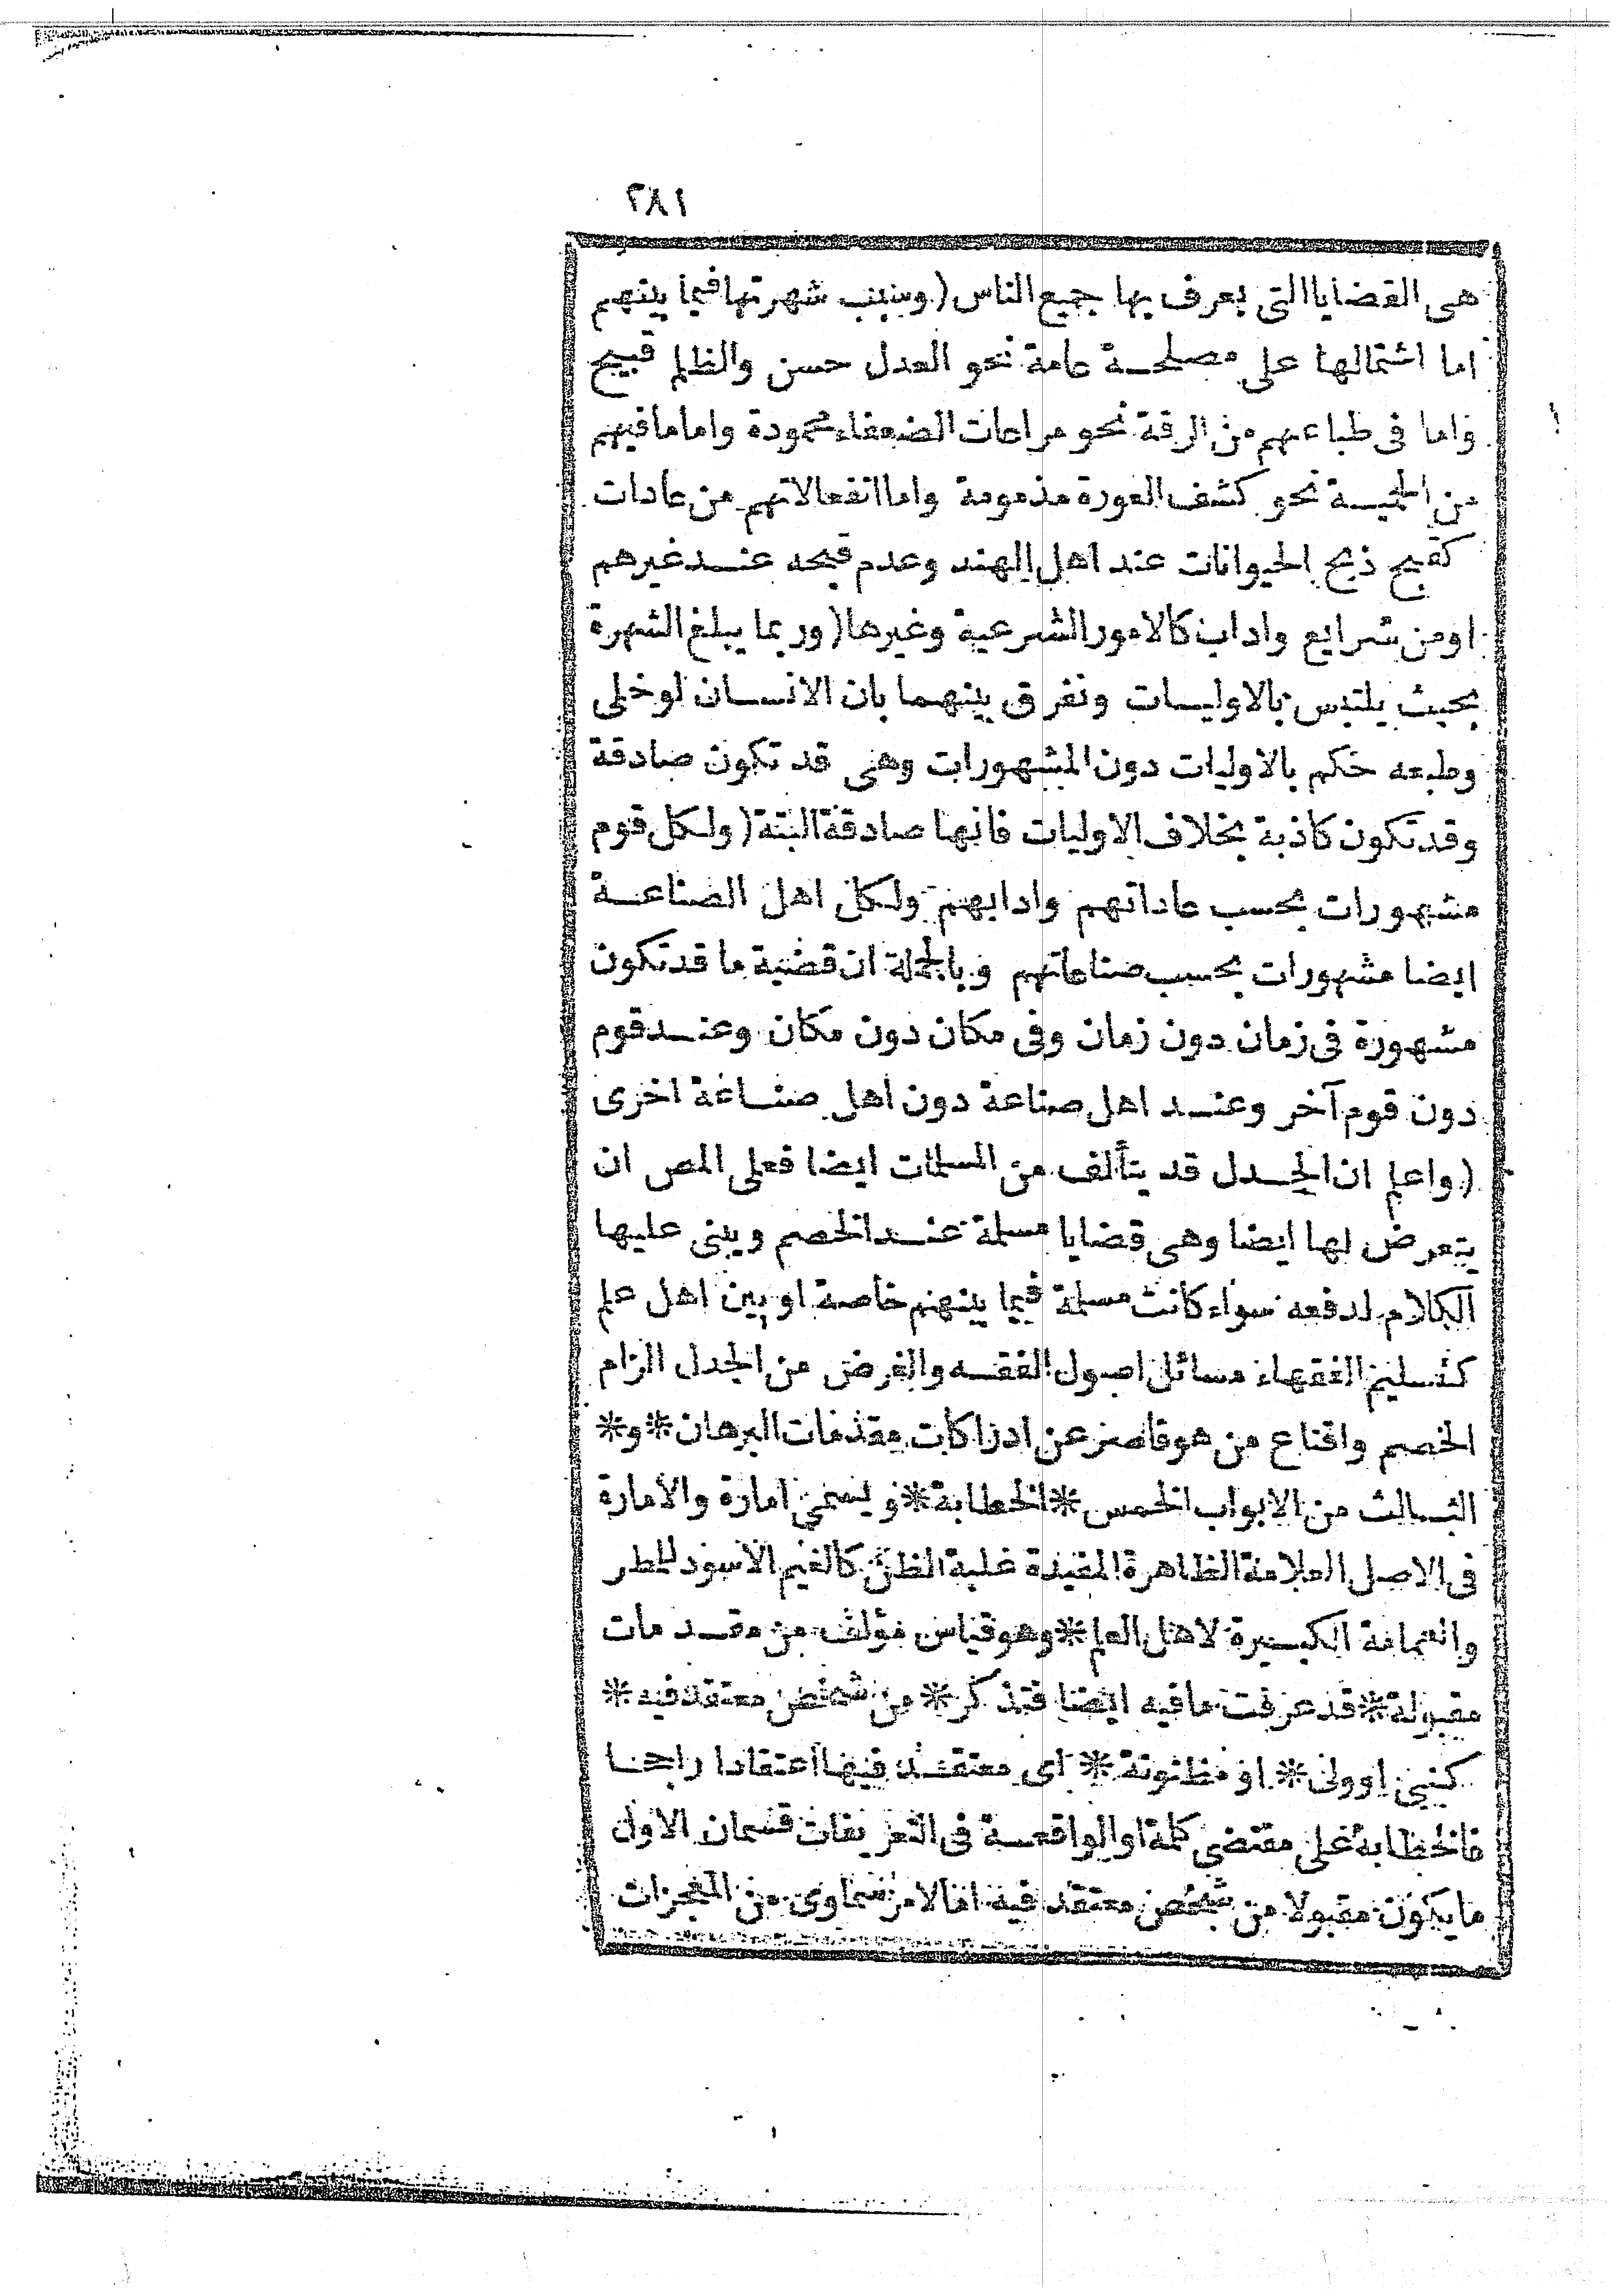 ٢٨١
هى القضايا التى يعرف بها جميع الناس (وسبب شهرتها فيما بينهم
اما اشتمالها على مصلحة عامة نحو العدل حسن والظلم قبيح
واما فى طباعهم من الرقة نحو مراعات الضعفاء محمودة واما ما فيهم
من الحمية نحو كشف العورة مذمومة واما انفعالاتهم من عادات
كقبح ذبح الحيوانات عند اهل الهند وعدم قبحه عند غيرهم
او من شرايع واداب كالامور الشرعية وغيرها (وربما يبلغ الشهرة
بحيث يلتبس بالاوليات ونفرق بينهما بان الانسان لو خلى
وطبعه حكم بالاوليات دون المشهورات وهى قد تكون صادقة
وقد تكون كاذبة بخلاف الاوليات فانها صادقة البتة (ولكل قوم
مشهورات بحسب عاداتهم وادابهم ولكل اهل الصناعة
ايضا مشهورات بحسب صناعاتهم وبالجملة ان قضية ما قد تكون
مشهورة فى زمان دون زمان وفى مكان دون مكان وعند قوم
دون قوم آخر وعند اهل صناعة دون اهل صناعة اخرى
(واعلم ان الجدل قد يتألف من المسلمات ايضا فعلى المص ان
يتعرض لها ايضا وهى قضايا مسلمة عند الخصم ويبنى عليها
الكلام لدفعه سواء كانت مسلمة فيما بينهم خاصة او بين اهل علم
كتسليم الفقهاء مسائل اصول الفقه والغرض من الجدل الزام
الخصم واقناع من هو قاصر عن ادراكات مقدمات البرهان * و *
الثالث من الابواب الخمس * الخطابة * ويسمى امارة والامارة
فى الاصل العلامة الظاهرة المفيدة غلبة الظن كالغيم الاسود للمطر
والعمامة الكبيرة لاهل العلم * وهو قياس مؤلف من مقدمات
مقبولة * قد عرفت ما فيه ايضا فتذكر * من شخص معتقد فيه *
كنبى او ولى * او مظنونة * اى معتقد فيها اعتقادا راجحا
فالخطابة على مقتضى كلمة او الواقعة فى التعريفات قسمان الاول
ما يكون مقبولا من شخص معتقد فيه اما لامر سماوى من المعجزات